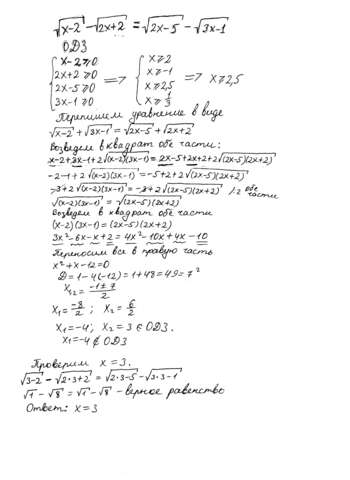 √(x-2) - √(2x+2) = √(2x-5) - √(3x-1)
ОДЗ
{ x-2 ≥ 0 { x ≥ 2
{ 2x+2 ≥ 0 => { x ≥ -1 => x ≥ 2,5
{ 2x-5 ≥ 0 { x ≥ 2,5
{ 3x-1 ≥ 0 { x ≥ 1/3
Перепишем уравнение в виде
√(x-2) + √(3x-1) = √(2x-5) + √(2x+2)
Возведем в квадрат обе части:
x-2+3x-1+2√((x-2)(3x-1)) = 2x-5+2x+2+2√((2x-5)(2x+2))
-2-1+2√((x-2)(3x-1)) = -5+2+2√((2x-5)(2x+2))
-3+2√((x-2)(3x-1)) = -3+2√((2x-5)(2x+2)) /:2 обе части
√((x-2)(3x-1)) = √((2x-5)(2x+2))
Возведем в квадрат обе части
(x-2)(3x-1) = (2x-5)(2x+2)
3x²-6x-x+2 = 4x²-10x+4x-10
Переносим все в правую часть
x²+x-12=0
D=1-4(-12)=1+48=49=7²
x₁,₂ = (-1±7)/2
x₁ = -8/2 ; x₂ = 6/2
x₁=-4; x₂=3 ∈ ОДЗ.
x₁=-4 ∉ ОДЗ
Проверим x=3.
√(3-2) - √(2·3+2) = √(2·3-5) - √(3·3-1)
√1 - √8 = √1 - √8 - верное равенство
Ответ: x=3